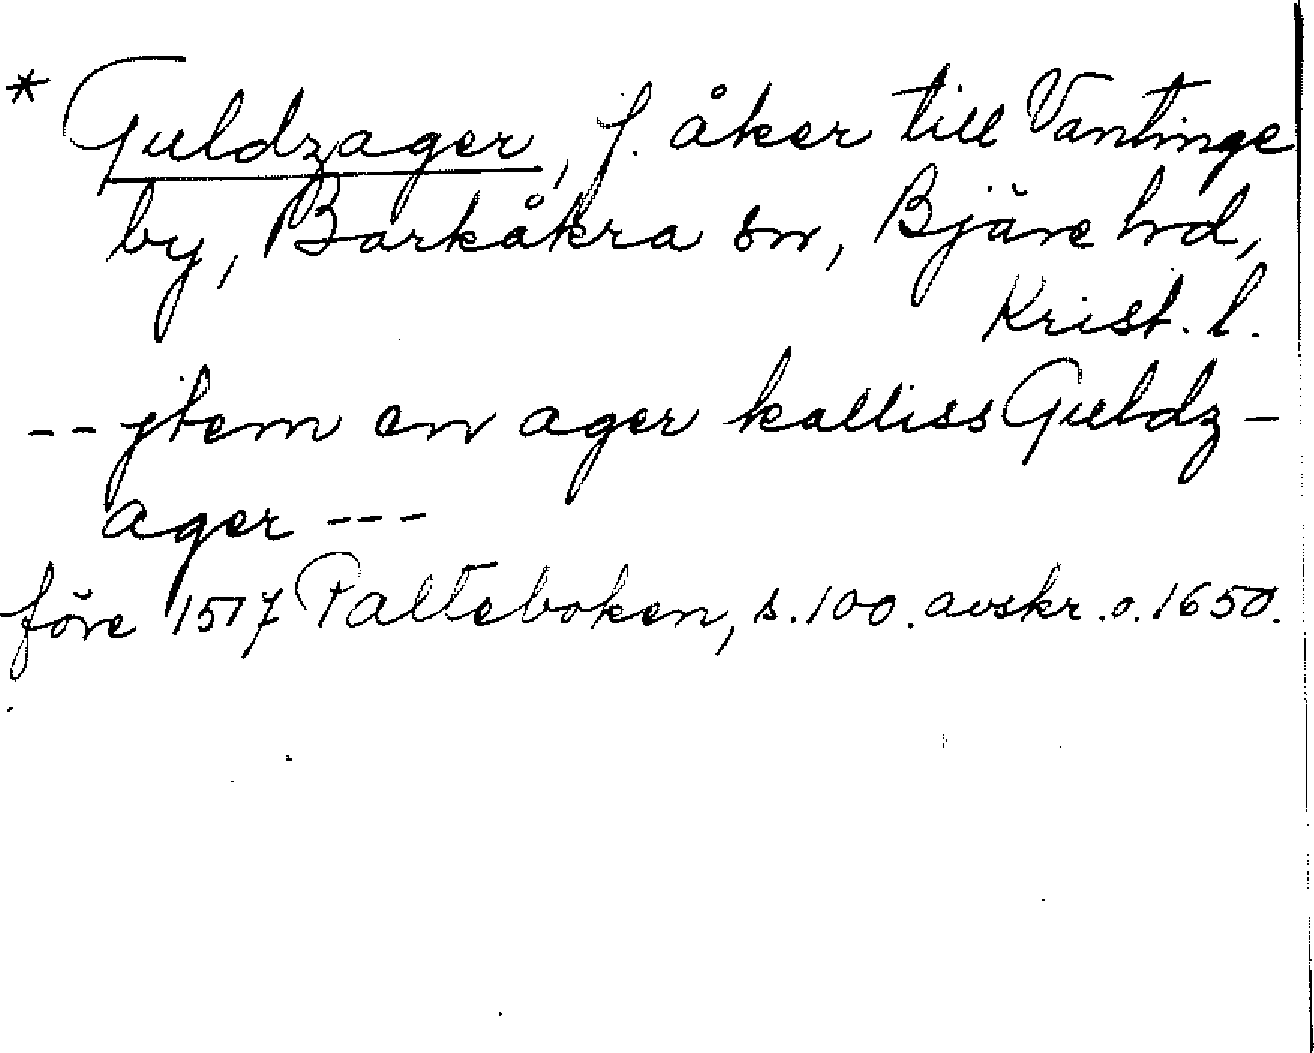 * Guldzager, f. åker till Vantinge
by, Barkåkra sn, Bjäre hd,
Krist. l.
-- jtem en ager kalliss Guldz-
ager ---
före 1517 Palteboken, s. 100. avskr. o. 1650.